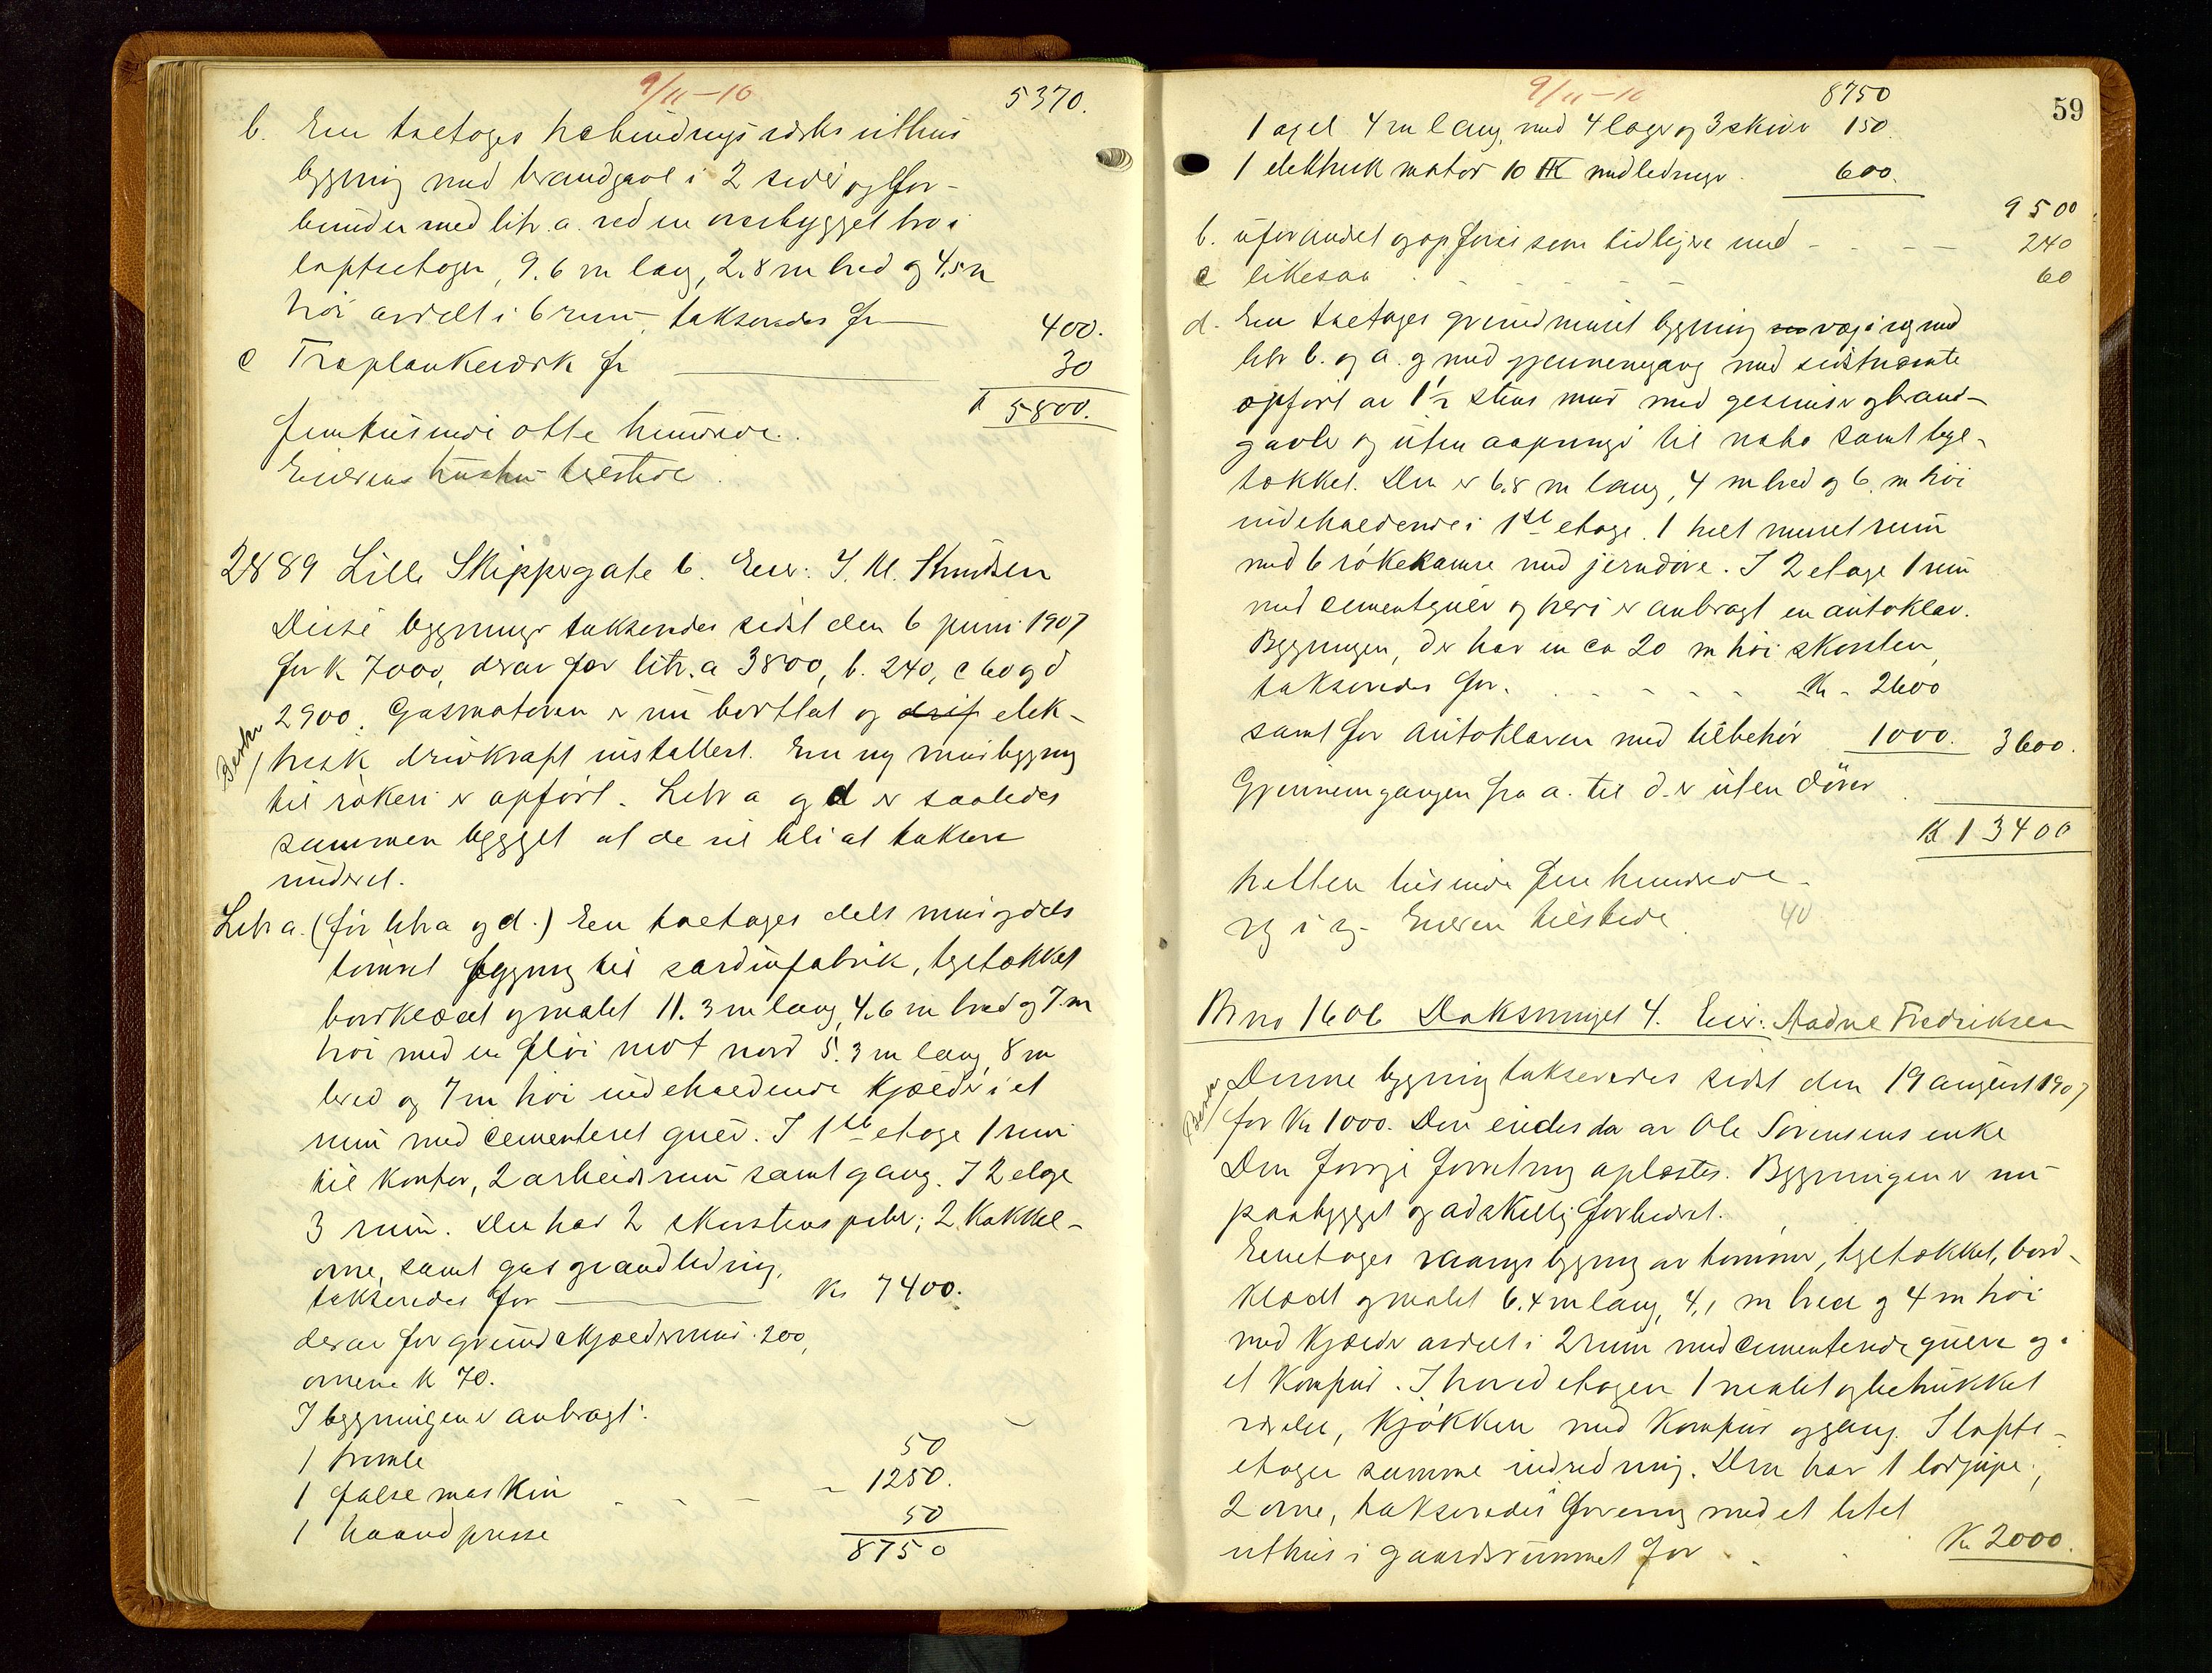 9/11-10
5370.
b. En toetages utbindingsverks uthus
bygning med brandgavl i 2 sider og for-
bunden med litr. a. ved en overbygget bro i
loftsetagen, 9.6 m lang, 2.8 m bred og 4.5 m
høi avdelt i 6 rum, taksered​es for 400.
c Træplankeverk for 30
5800.
femtusinde otte hundrede.
Eierens hustru tilstede.
2889 Lille Skippergate 6. Eier: J. M. Knudsen
Disse bygninger takseredes sidst den 6 juni 1907
for K 7000, derav for litr. a 3800, b. 240, c 60 og d
2900. Gasmotoren er nu borttat og drif elek-
trisk drivkraft installert. En ny murbygning
til røkeri er opført. Litr a og d er saaledes
sammen bygget at de vil bli at taksere
under et.
Litr a. (før litr a og d.) En toetages dels mur og dels
tømret bygning til sardinfabrik, tegltækket
bordklædt og malet 11.3 m lang, 4.6 m bred og 7 m
høi med en fløi mot nord 5.3 m lang, 8 m
bred og 7 m høi indeholdende kjælder i et
rum med cementeret gulv. I 1ste etage 1 rum
til kontor, 2 arbeidsrum samt gang. I 2 etge
3 rum. Den har 2 skorstenspiber, 2 kakkel-
ovne, samt gas og vandledning,
takseredes for Kr 7400.
derav for grund & kjældermur 200,
ovnene K 70.
I bygningen er anbragt:
1 tromle 50
1 falsemaskin - 1250.
1 haandpresse 50
8750
9/11-10
8750
59
1 axel 4 m lang, med 4 lager og 3 skiver 150.
1 elektrisk motor 10 HK med ledninger 600.
9500
b. uforandret og opføres som tidligere med 240
c likesaa 60
d. En toetages grundmuret bygning væg i væg med
litr b. og a. og med gjennemgang med sidstnævnte
opført av 1½ stens mur med gesimser og brand-
gavler og uten aapninger til nabo samt tegl-
tækket. Den er 6.8 m lang, 4 m bred og 6 m høi
indeholdende i 1ste etage 1 helt muret rum
med 6 røkekamre med jerndøre. I 2 etage 1 rum
med cementgulv og heri er anbragt en autoklav.
Bygningen, der har en ca 20 m høi skorsten,
takseredes for Kr. 2600
samt for autoklaven med tilbehør 1000. 3600.
Gjennemgangen fra a. til d. er uten dører
K 13400
tretten tusinde fire hundrede
væg i væg. Eieren tilstede. 40
Mno 1606 Daksmuget 4. Eier: Aadne Fredriksen
Denne bygning takseredes sidst den 19 august 1907
for Kr 1000. Den eiedes da av Ole Sørensens enke
Den forrige forretning oplæstes. Bygningen er nu
paabygget og adskillig forbedret.
Enetages vaanings bygning av tømmer, tegltækket, bord-
klædt og malet 6.4 m lang, 4,1 m bred og 4 m høi
med kjælder avdelt i 2 rum med cementerede gulve og
et komfur. I hovedetagen 1 malet og betrukket
værelse, kjøkken med komfur og gang. I lofts-
etagen samme indredning. Den har 1 lodpipe,
2 ovne, takseredes forening med et litet
uthus i gaardsrummet for Kr 2000.